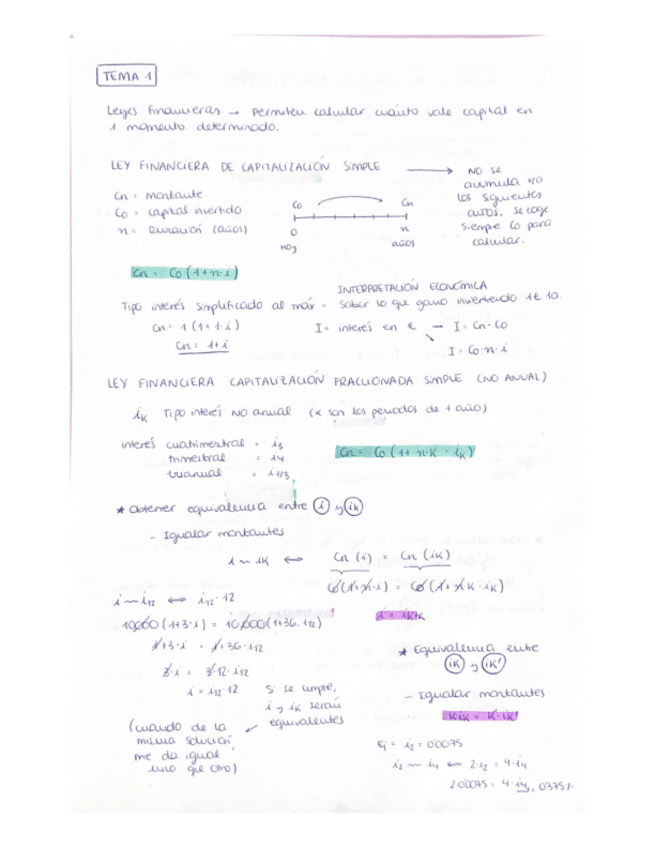 TEMA 1
Leyes financieras → permiten calcular cuánto vale capital en
1 momento determinado.
LEY FINANCIERA DE CAPITALIZACIÓN SIMPLE → NO se
acumula
los siguientes
años. Se coge
siempre Co para
calcular.
Cn = montante
Co = capital invertido
n = Duración (años)
Co Cn
0 n
hoy años
Cn = Co (1+n·i)
INTERPRETACIÓN ECONÓMICA
Tipo interés simplificado al máx = Saber lo que gano invirtiendo 1€ 1a.
Cn = 1 (1+1·i) I = interés en € → I = Cn-Co
Cn = 1+i I = Co·n·i
LEY FINANCIERA CAPITALIZACIÓN FRACCIONADA SIMPLE (NO ANUAL)
iK Tipo interés NO anual (K son los periodos de 1 año)
interés cuatrimestral = i3
trimestral = i4
trianual = i1/3
Cn = Co (1+ n·K · iK)
* Obtener equivalencia entre i y iK
- Igualar montantes
i ~ iK ⟺ Cn (i) = Cn (iK)
Co(1+n·i) = Co(1+n·K·iK)
i = iK·K
i ~ i12 ⟺ i12·12
10000 (1+3·i) = 10,000 (1+36·i12)
1+3·i = 1+36·i12
3·i = 3·12·i12
i = i12·12
Si se cumple,
i y iK serán
equivalentes
(cuando de la
misma solución,
me da igual
uno que otro)
* Equivalencia entre
iK y iK'
- Igualar montantes
K·iK = K'·iK'
Ej = i2 = 0'0075
i2 ~ i4 ⟺ 2·i2 = 4·i4
2·0'0075 = 4·i4, 0'375%